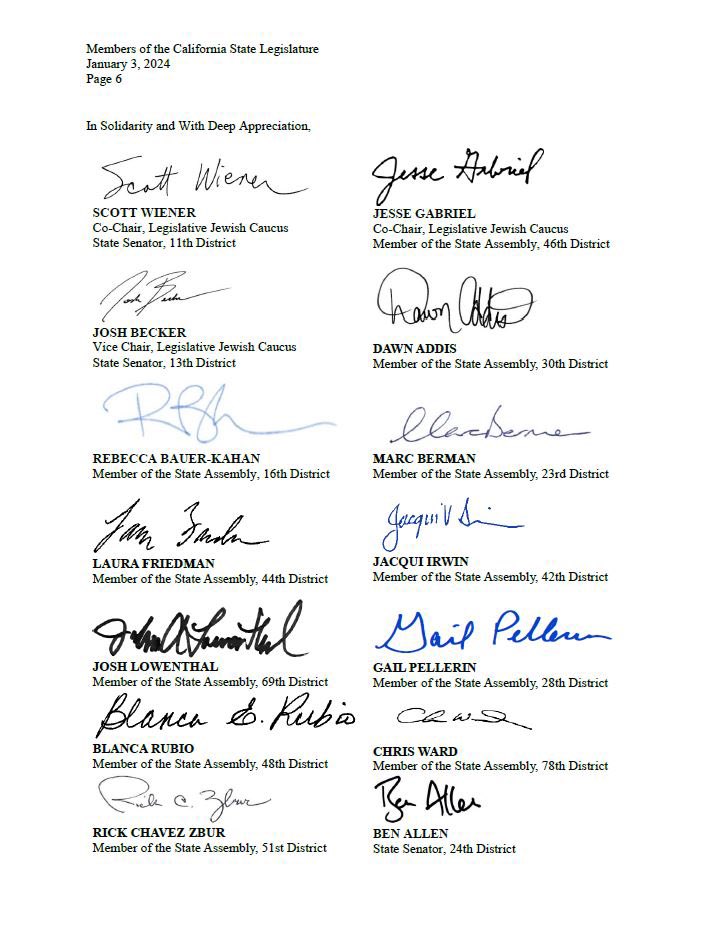 Members of the California State Legislature
January 3, 2024
Page 6
In Solidarity and With Deep Appreciation,
Scott Wiener
SCOTT WIENER
Co-Chair, Legislative Jewish Caucus
State Senator, 11th District
Jesse Gabriel
JESSE GABRIEL
Co-Chair, Legislative Jewish Caucus
Member of the State Assembly, 46th District
Josh Becker
JOSH BECKER
Vice Chair, Legislative Jewish Caucus
State Senator, 13th District
Dawn Addis
DAWN ADDIS
Member of the State Assembly, 30th District
REBECCA BAUER-KAHAN
Member of the State Assembly, 16th District
Marc Berman
MARC BERMAN
Member of the State Assembly, 23rd District
LAURA FRIEDMAN
Member of the State Assembly, 44th District
Jacqui V
JACQUI IRWIN
Member of the State Assembly, 42th District
JOSH LOWENTHAL
Member of the State Assembly, 69th District
Gail Pellerin
GAIL PELLERIN
Member of the State Assembly, 28th District
Blanca E. Rubio
BLANCA RUBIO
Member of the State Assembly, 48th District
CHRIS WARD
Member of the State Assembly, 78th District
Rick C. Zbur
RICK CHAVEZ ZBUR
Member of the State Assembly, 51st District
Ben Allen
BEN ALLEN
State Senator, 24th District